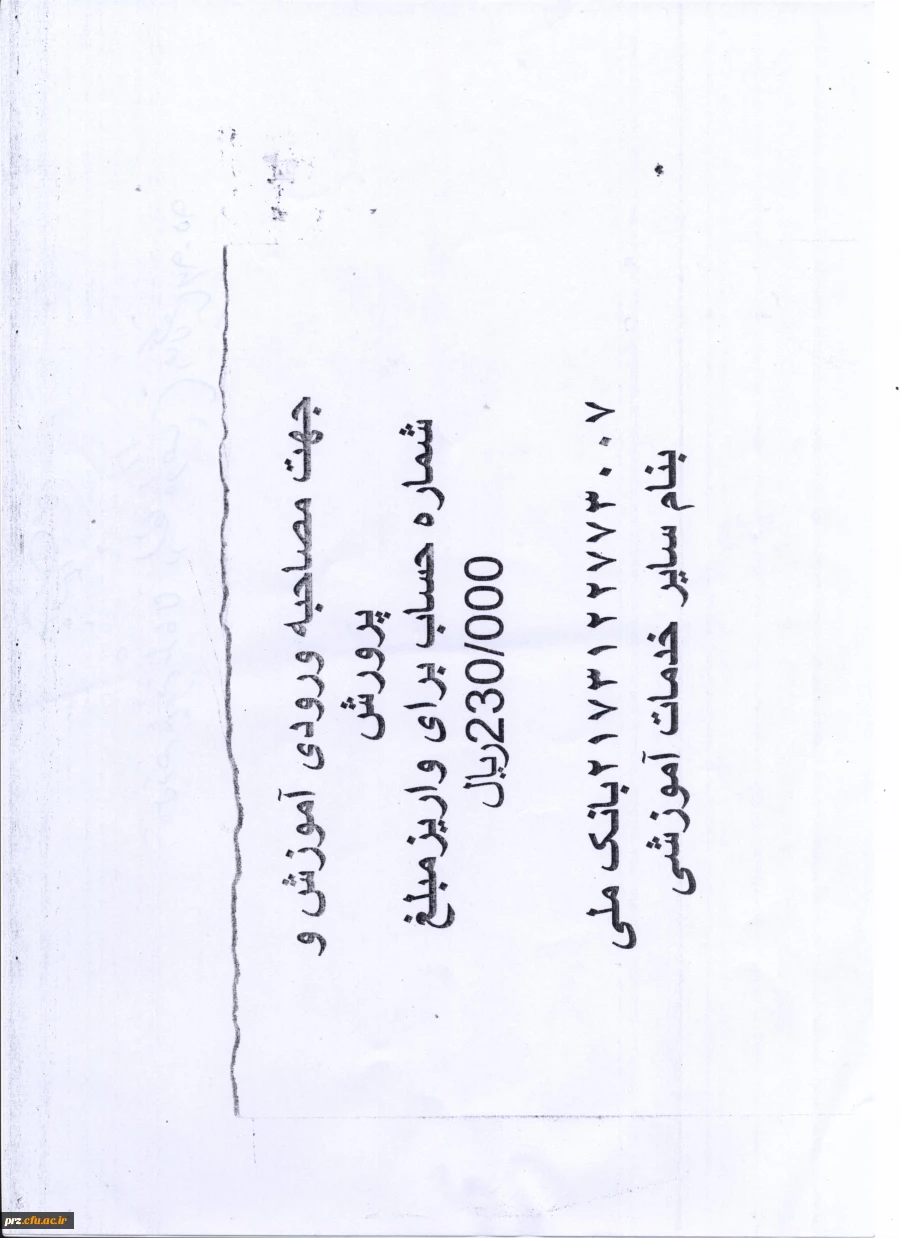 جهت مصاحبه ورودی آموزش و
پرورش
شماره حساب برای واریزمبلغ
230/000ریال
۲۱۷۳۱۲۲۷۷۳۰۰۷بانک ملی
بنام سایر خدمات آموزشی
prz.cfu.ac.ir